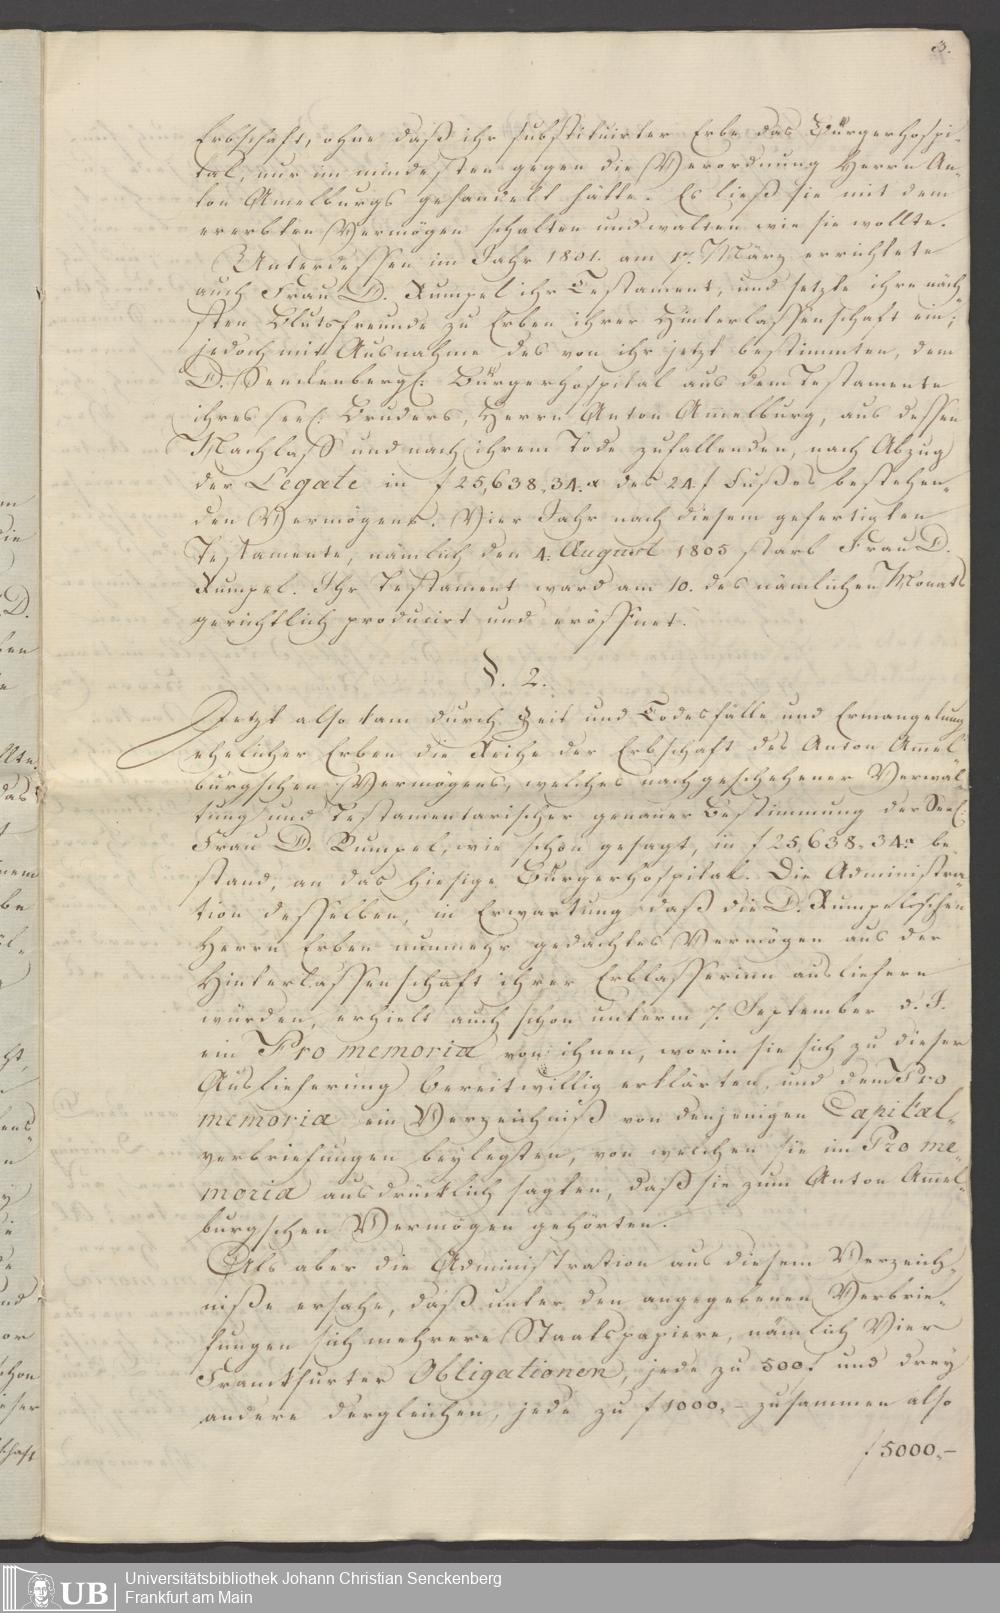 3.
Erbschaft, ohne daß ihr substituirter Erbe das Bürgerhospi-
tal, nur im mindesten gegen die Verordnung Herrn An-
ton Amelburgs gehandelt hätte. Es ließ sie mit dem
ererbten Vermögen schalten und walten wie sie wollte.
Unterdessen im Jahr 1801. am 17. März errichtete
auch Frau D. Rumpel ihr Testament, und setzte ihre näch-
sten Blutsfreunde zu Erben ihrer Hinterlassenschaft ein;
jedoch mit Ausnahme des von ihr jetzt bestimmten, dem
D. Senckenbergl: Bürgerhospital aus dem Testamente
ihres seel: Bruders, Herrn Anton Amelburg, aus dessen
Nachlaß und nach ihrem Tode zufallenden, nach Abzug
der Legate in f 25,638.34.x des 24 f Fußes bestehen-
den Vermögens. Vier Jahr nach diesem gefertigten
Testamente, nämlich den 4. August 1805 starb Frau D.
Rumpel. Ihr Testament ward am 10. des nämlichen Monats
gerichtlich producirt und eröffnet.
§. 2.
Jetzt also kam durch Zeit und Todesfälle und Ermangelung
ehelicher Erben die Reihe der Erbschaft des Anton Amel-
burgschen Vermögens, welches nach geschehener Verwal-
tung und testamentarischer genauer Bestimmung der Seel:
Frau D. Rumpel, wie schon gesagt, in f 25,638.34.x be-
stand, an das hiesige Bürgerhospital. Die Administra-
tion desselben, in Erwartung daß die D. Rumpelschen
Herrn Erben nunmehr gedachtes Vermögen aus der
Hinterlassenschaft ihrer Erblasserinn ausliefern
würden, erhielt auch schon unterm 7. September d. J.
ein Pro memoria von ihnen, worin sie sich zu dieser
Auslieferung bereitwillig erklärten, und dem Pro
memoria ein Verzeichniß von denjenigen Capital-
verbriefungen beylegten, von welchen sie im Pro me-
moria ausdrücklich sagten, daß sie zum Anton Amel-
burgschen Vermögen gehörten.
Als aber die Administration aus diesem Verzeich-
niße ersahe, daß unter den angegebenen Verbrie-
fungen sich mehrere Staatspapiere, nämlich Vier
Franckfurter Obligationen, jede zu 500 f und drey
andere dergleichen, jede zu f 1000,- zusammen also
f 5000,-
UB Universitätsbibliothek Johann Christian Senckenberg
Frankfurt am Main